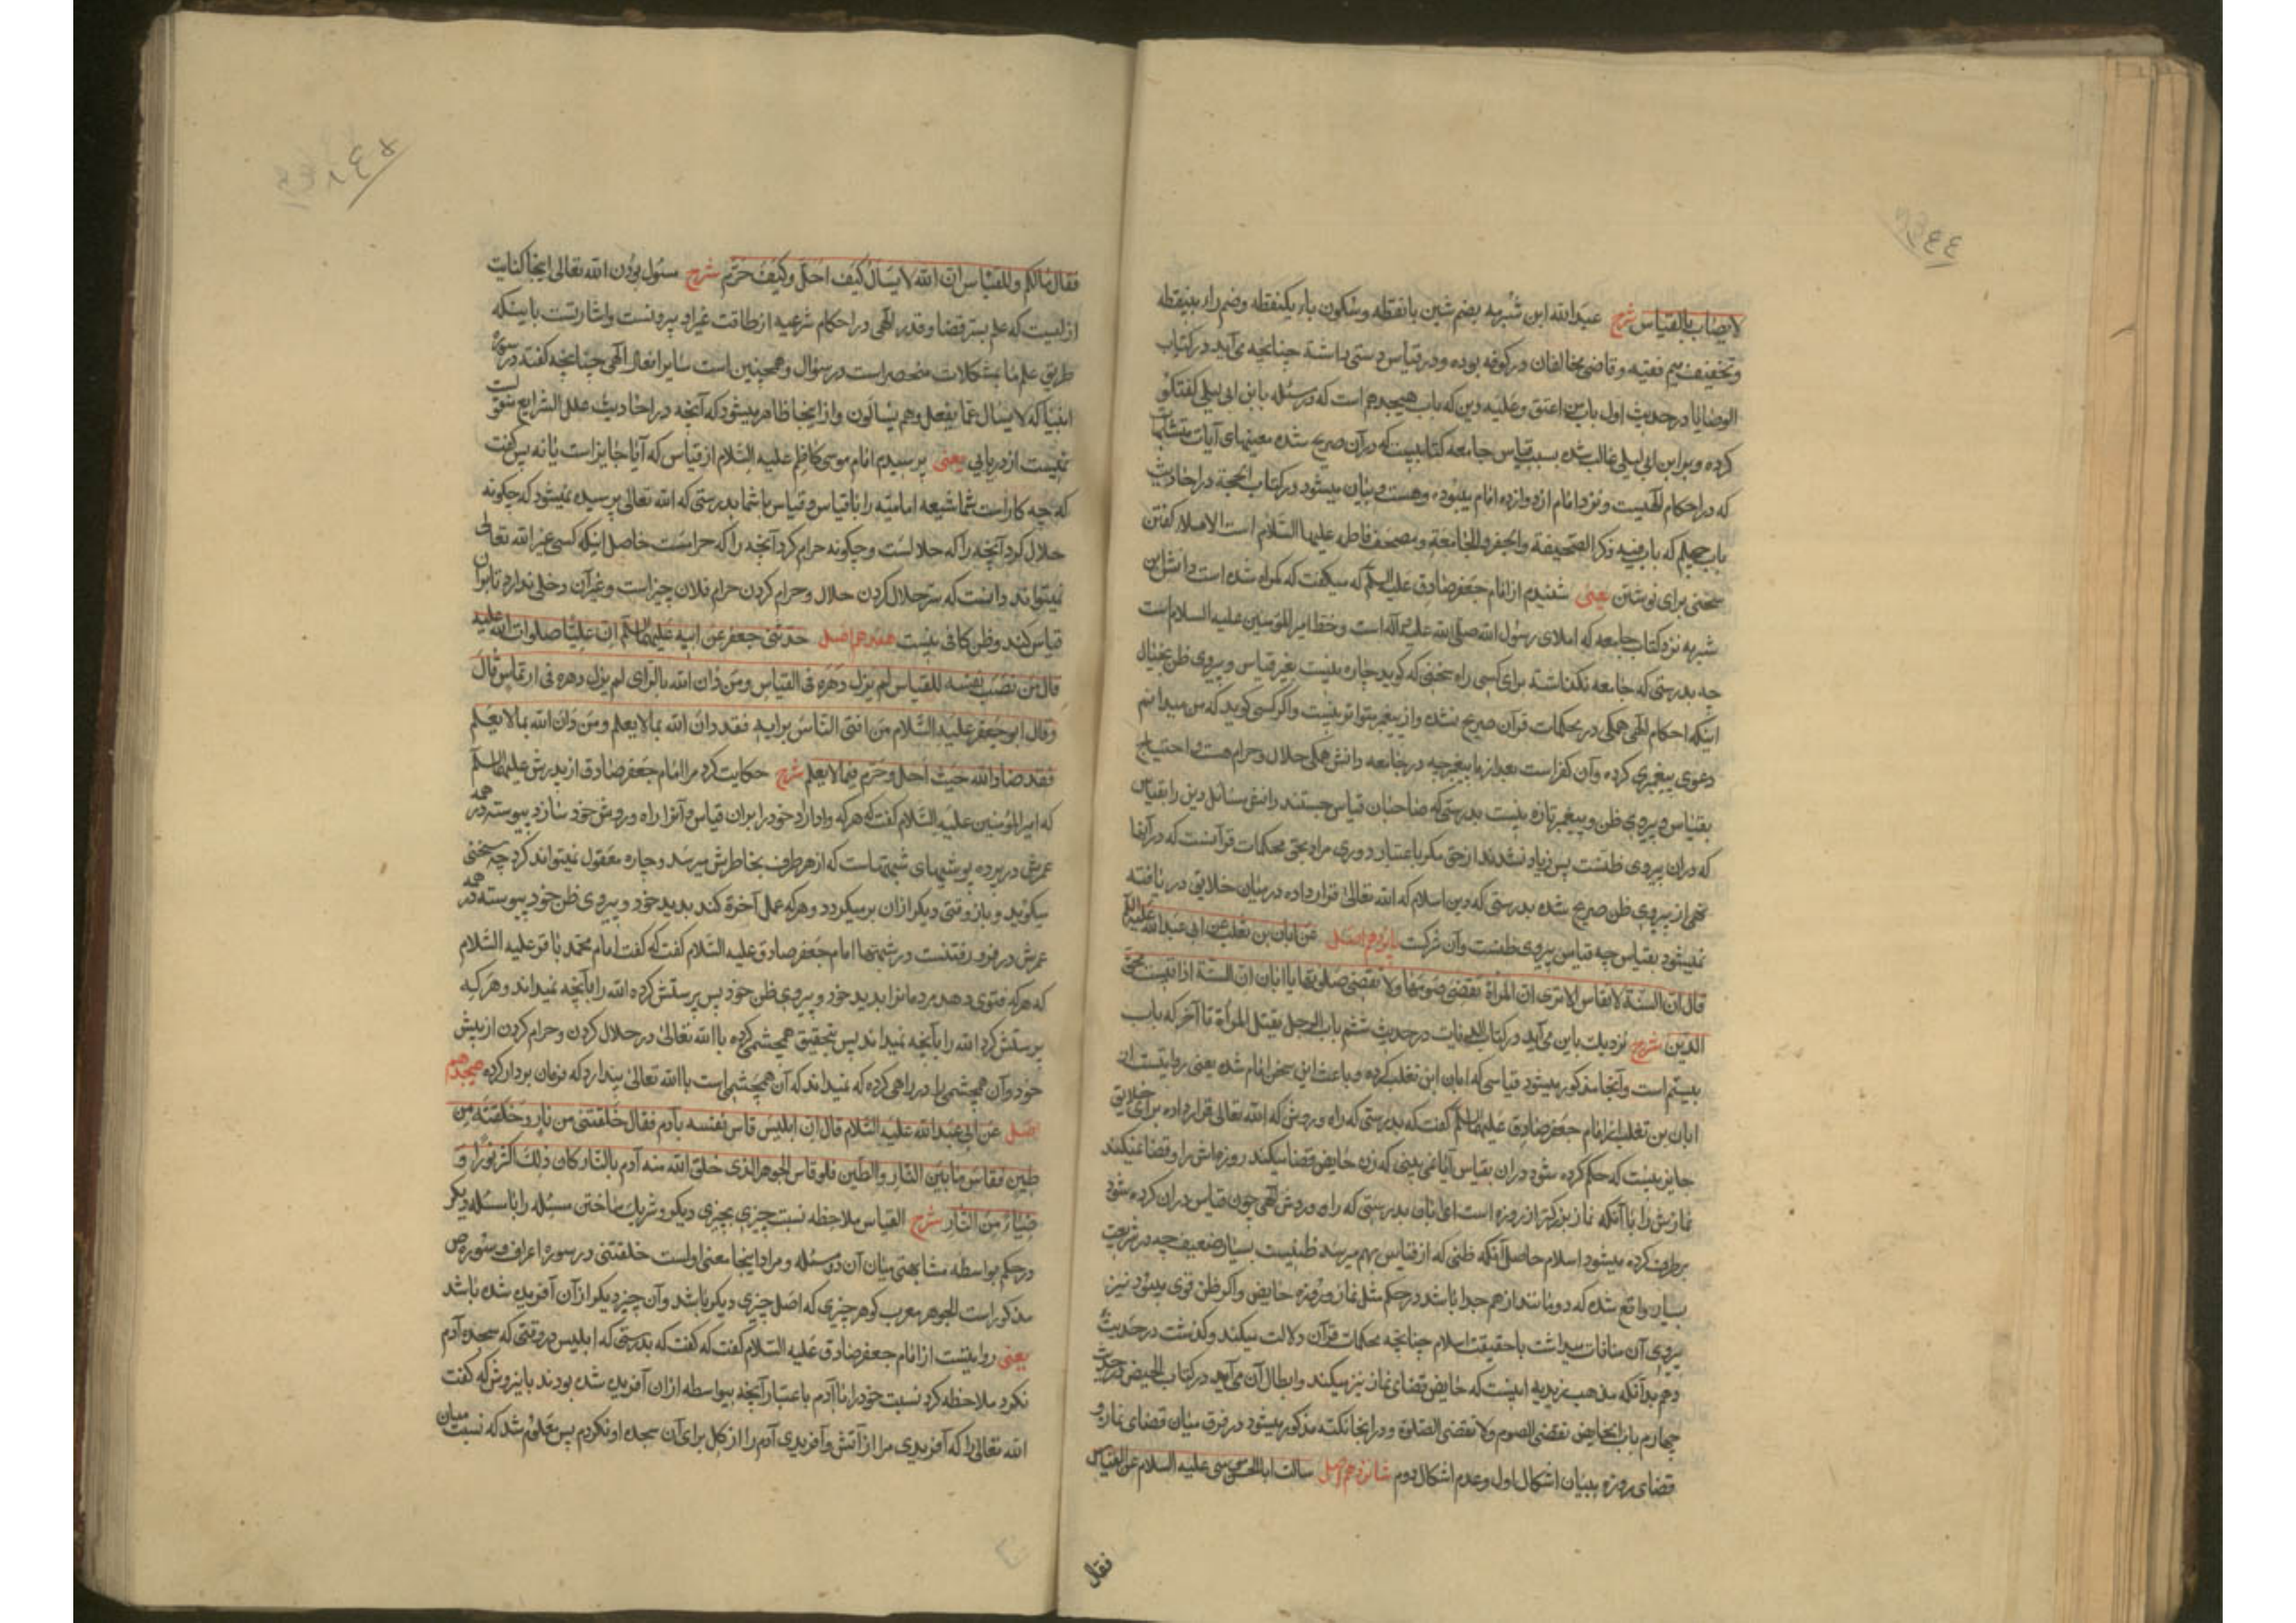 لا یصاب بالقیاس شرح عبدالله ابن شبرمه بضم شین با نقطه و سکون باء یکنقطه و ضم راء بینقطه
و تخفیف میم فقیه و قاضی مخالفان در کوفه بوده و در قیاس دستی داشته چنانچه می‌آید در کتاب
الوصایا در حدیث اول باب من اعتق و علیه دین که باب هیجدهم است که در مسئله با ابن ابی لیلی گفتگو
کرده و بر ابن ابی لیلی غالب شده بسبب قیاس جامعه کتابیست که در آن صریح شده معنیهای آیات متشابهات
که در احکام الهیست و نزد امام از دوازده امام میبوده و هست و بیان میشود در کتاب الحجة در احادیث
باب چهلم که باب فیه ذکر الصحیفة و الجفر و الجامعة و مصحف فاطمه علیها السلام است الاملاء گفتن
سخنی برای نوشتن یعنی شنیدم از امام جعفر صادق علیه السلم که میگفت که گمراه شده است دانش ابن
شبرمه نزد کتاب جامعه که املای رسول الله صلی الله علیه و آله است و خط امیر المؤمنین علیه السلام است
چه بدرستی که جامعه نگذاشته برای کسی راه سخنی که گوید چاره نیست بغیر قیاس و پیروی ظن بخیال
اینکه احکام الهی همگی در محکمات قرآن صریح نشده و از پیغمبر متواتر نیست و اگر کسی گوید که من میدانم
دعوی پیغمبری کرده و آن کفر است بعد از ما پیغمبر چه در جامعه دانش همگی حلال و حرام هست و احتیاج
بقیاس و پیروی ظن و پیغمبر تازه نیست بدرستی که صاحبان قیاس جستند دانش مسائل دین را بقیاس
که در آن پیروی ظنست پس زیاد نشدند از حق مگر باعتبار دوری مراد بحق محکمات قرآنست که در آنها
نهی از پیروی ظن صریح شده بدرستی که دین اسلام که الله تعالی قرار داده در میان خلایق دریافته
نمیشود بقیاس چه قیاس پیروی ظنست و آن شرکست پانزدهم اصل عن ابان بن تغلب عن ابی عبدالله علیه السلم
قال ان السنة لا تقاس الا تری ان المرأة تقضی صومها ولا تقضی صلوتها یا ابان ان السنة اذا قیست محق
الدین شرح نزدیک باین می‌آید در کتاب الدیات در حدیث ششم باب الرجل یقتل المرأة تا آخر که باب
بیستم است و آنجا مذکور میشود قیاسی که ابان ابن تغلب کرده و باعث این سخن امام شده یعنی روایتست از
ابان بن تغلب از امام جعفر صادق علیه السلم گفت که بدرستی که راه و روش که الله تعالی قرار داده برای خلایق
جایز نیست که حکم کرده شود در آن بقیاس آیا نمی‌بینی که زن حایض قضا میکند روزه‌اش را و قضا نمیکند
نمازش را با آنکه نماز بزرگتر از روزه است ای ابان بدرستی که راه و روش الهی چون قیاس در آن کرده شود
برطرف کرده میشود اسلام حاصل آنکه ظنی که از قیاس بهم میرسد ظنیست بسیار ضعیف چه در شریعت
بسیار واقع شده که دو مانند از هم جدا باشد در حکم مثل نماز و روزه حایض و اگر ظن قوی میبود نیز
پیروی آن منافات میداشت با حقیقت اسلام چنانچه محکمات قرآن دلالت میکند و گذشت در حدیث
دهم بدانکه مذهب زیدیه اینست که حایض قضای نماز نیز میکند و ابطال آن می‌آید در کتاب الحیض در حدیث
چهارم باب الحایض تقضی الصوم ولا تقضی الصلوة و در اینجا نکته مذکور میشود در فرق میان قضای نماز و
قضای روزه ببیان اشکال اول و عدم اشکال دوم شانزدهم اصل سألت ابا الحسن موسی علیه السلام عن القیاس
فقال
فقال مالکم وللقیاس ان الله لا یسأل کیف احل وکیف حرم شرح مسئول بودن الله تعالی اینجا کنایت
از اینست که علم بسر قضا و قدر الهی در احکام شرعیه از طاقت غیر او بیرونست و اشارتست باینکه
طریق علم ما بمشکلات منحصر است در سؤال و همچنین است سایر افعال الهی چنانچه گفته در سورهٔ
انبیا که لا یسأل عما یفعل وهم یسألون و از اینجا ظاهر میشود که آنچه در احادیث علل الشرایع
نیست از دریابی یعنی پرسیدم امام موسی کاظم علیه السلام از قیاس که آیا جایز است یا نه پس گفت
که چه کار است شما شیعه امامیه را با قیاس و قیاس با شما بدرستی که الله تعالی پرسیده نمیشود که چگونه
حلال کرد آنچه را که حلالست و چگونه حرام کرد آنچه را که حرامست حاصل اینکه کسی غیر الله تعالی
نمیتواند دانست که سر حلال کردن حلال و حرام کردن حرام فلان چیز است و غیر آن دخلی ندارد تا بر آن
قیاس کند و ظن کافی نیست هفدهم اصل حدثنی جعفر عن ابیه علیهما السلم ان علیا صلوات الله علیه
قال من نصب نفسه للقیاس لم یزل دهره فی التباس ومن دان الله بالرای لم یزل دهره فی ارتماس قال
وقال ابو جعفر علیه السلام من افتی الناس برایه فقد دان الله بما لا یعلم ومن دان الله بما لا یعلم
فقد ضاد الله حیث احل وحرم فیما لا یعلم شرح حکایت کرد مرا امام جعفر صادق از پدرش علیهما السلم
که امیر المؤمنین علیه السلام گفت که هر که وادارد خود را بر آن قیاس و آنرا راه و روش خود سازد پیوسته در همه
عمرش در پرده پوشیهای شبهتهاست که از هر طرف بخاطرش میرسد و چاره معقول نمیتواند کرد چه سخنی
میگوید و باز وقتی دیگر از آن برمیگردد و هر که عمل آخرة کند بدید خود و پیروی ظن خود پیوسته در همه
عمرش در فرو رفتنست در شبهتها امام جعفر صادق علیه السلام گفت که گفت امام محمد باقر علیه السلام
که هر که فتوی دهد مردمانرا بدید خود و پیروی ظن خود پس پرستش کرده الله را بآنچه نمیداند و هر که
پرستش کرد الله را بآنچه نمیداند پس بتحقیق همچشمی کرده با الله تعالی در حلال کردن و حرام کردن از پیش
خود و آن همچشمی را در راهی کرده که نمیداند که آن همچشمی است با الله تعالی پندارد که فرمان برداری کرده هیجدهم
اصل عن ابی عبدالله علیه السلام قال ان ابلیس قاس نفسه بآدم فقال خلقتنی من نار وخلقته من
طین فقاس ما بین النار والطین فلو قاس الجوهر الذی خلق الله منه آدم بالنار کان ذلک اکثر نورا و
ضیاء من النار شرح القیاس ملاحظه نسبت چیزی بچیزی دیگر و شریک ساختن مسئله را با مسئله دیگر
در حکم بواسطه مشابهتی میان آن دو مسئله و مراد اینجا معنی اولست خلقتنی در سورهٔ اعراف و سورهٔ ص
مذکور است الجوهر معرب گوهر چیزی که اصل چیزی دیگر باشد و آن چیز دیگر از آن آفریده شده باشد
یعنی روایتست از امام جعفر صادق علیه السلام گفت که گفت که بدرستی که ابلیس در وقتی که سجده آدم
نکرد ملاحظه کرد نسبت خود را با آدم باعتبار آنچه بیواسطه از آن آفریده شده بودند باین روش که گفت
الله تعالی را که آفریدی مرا از آتش و آفریدی آدم را از گل برای آن سجده او نکردم پس معلوم شد که نسبت میان